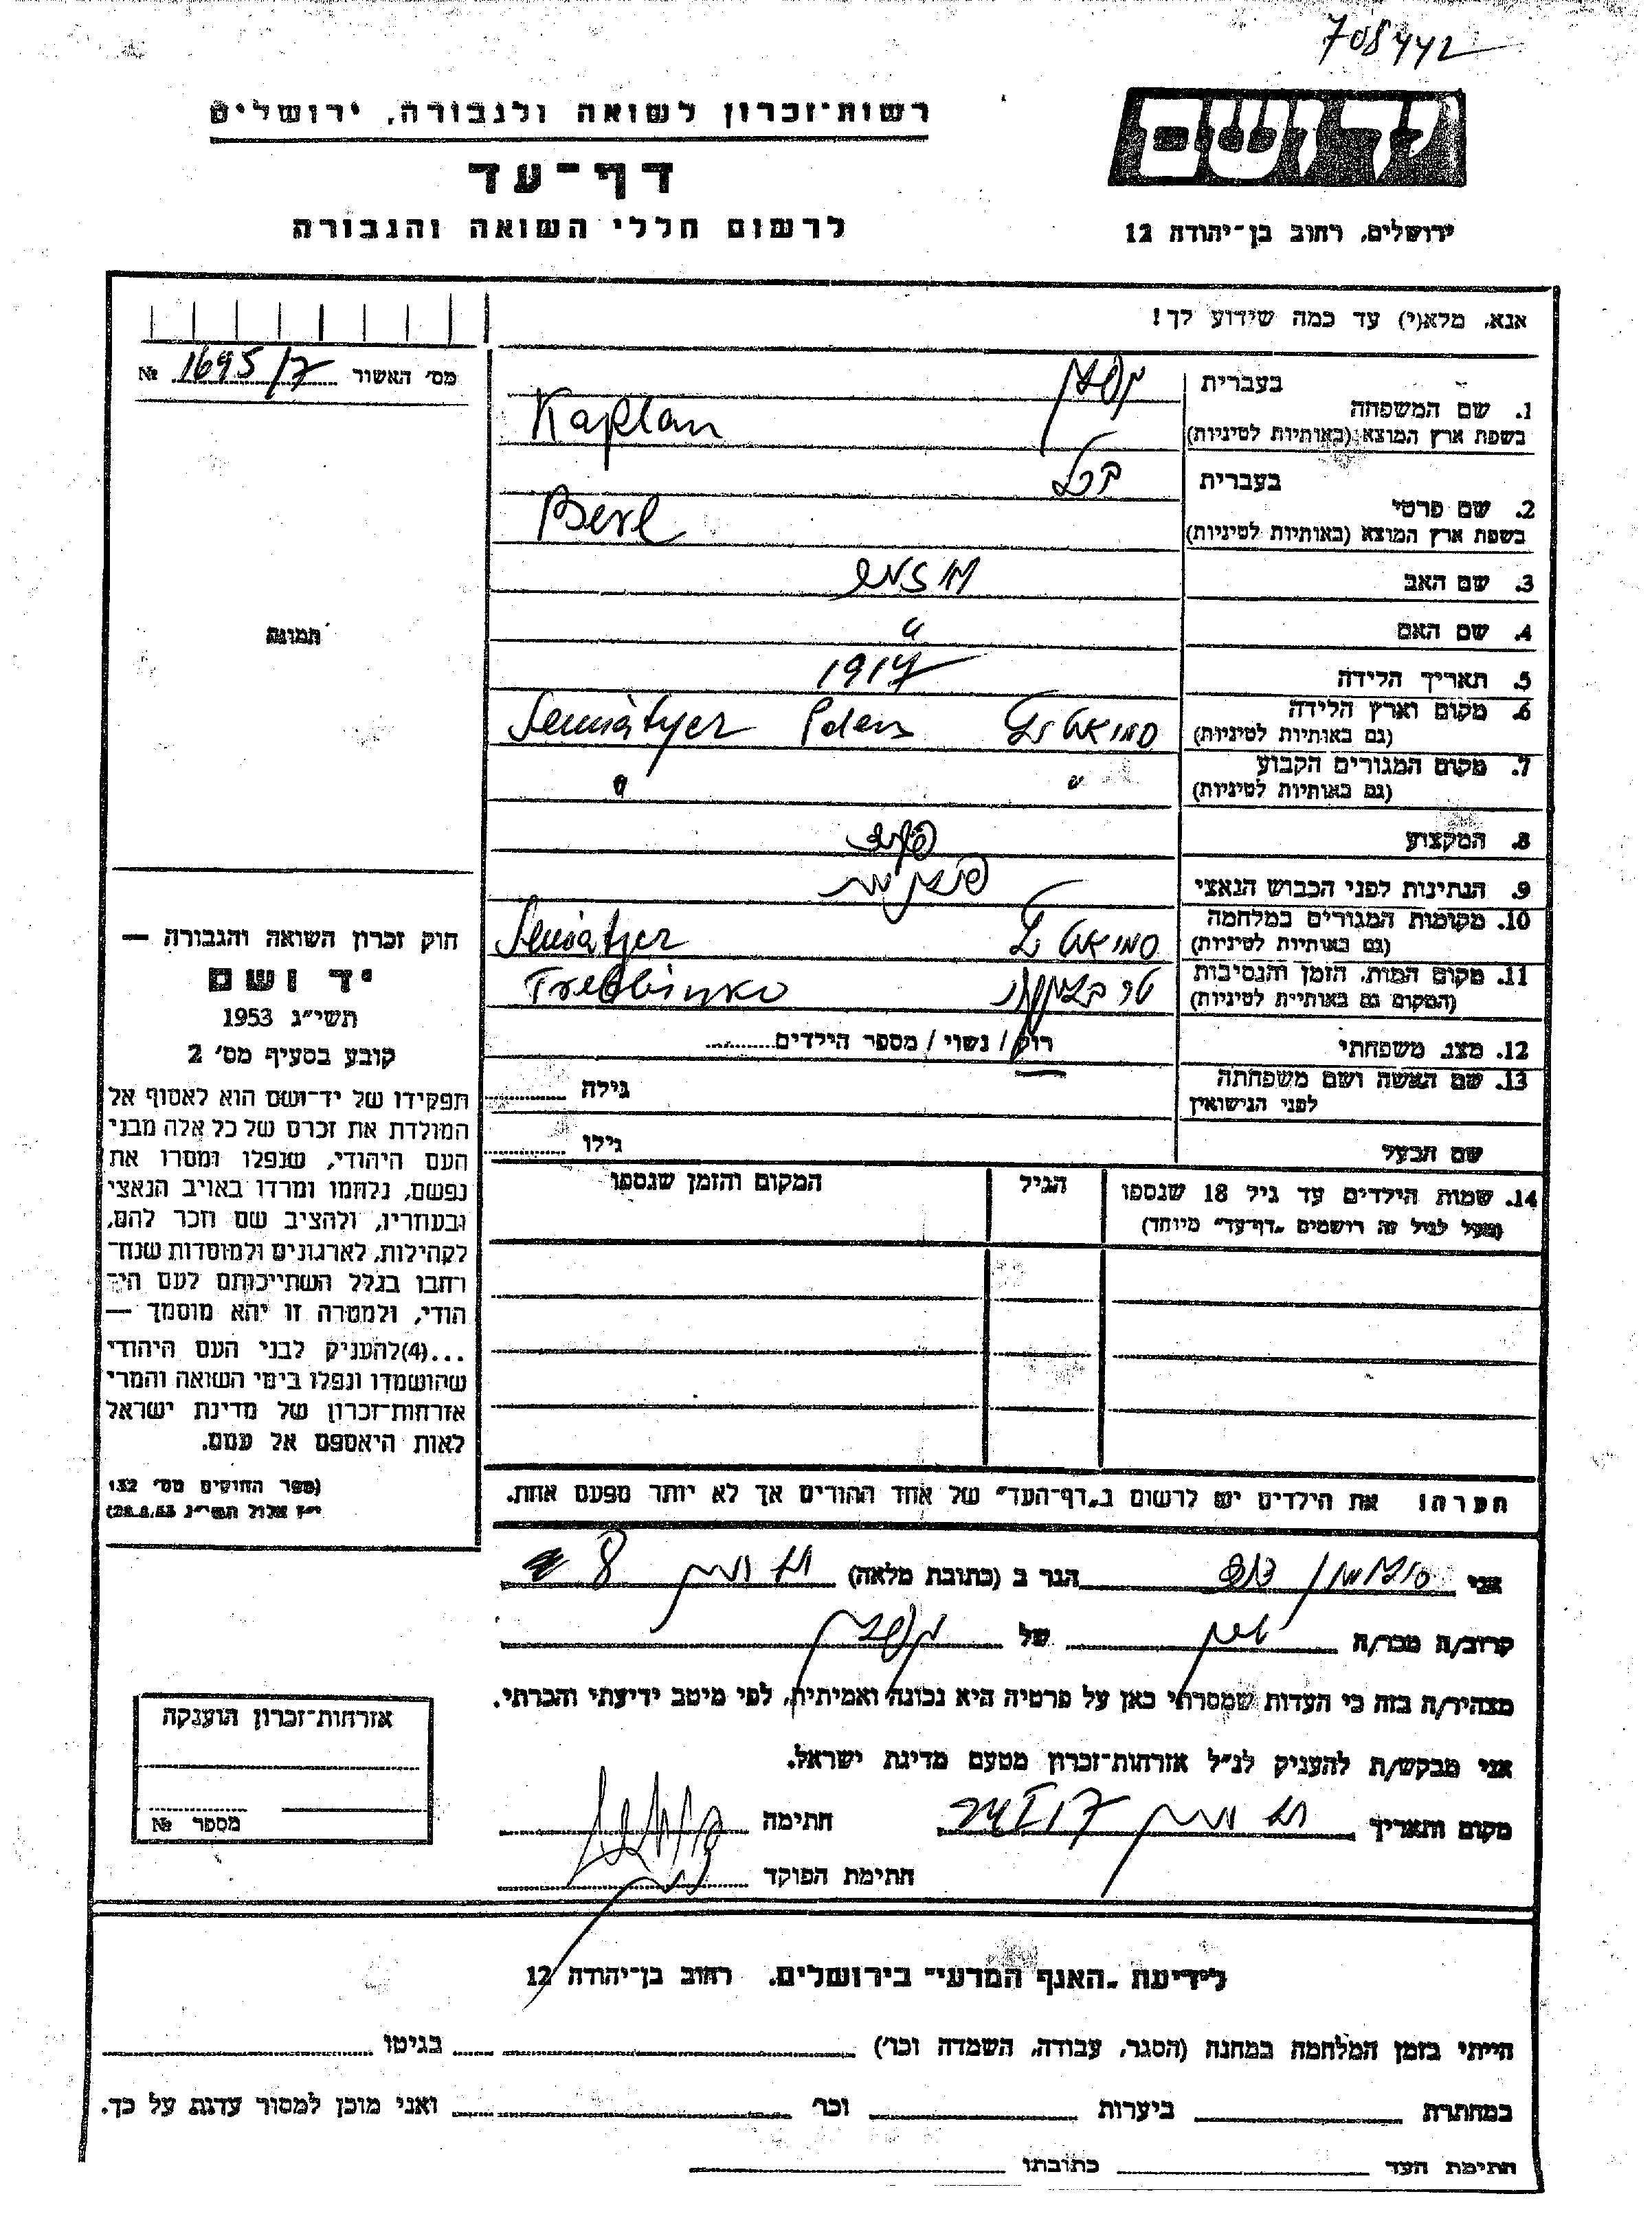 708442
רשות־זכרון לשואה ולגבורה, ירושלים
יד ושם
דף־עד
לרשום חללי השואה והגבורה
ירושלים, רחוב בן־יהודה 12
אנא, מלא(י) עד כמה שידוע לך!
מס׳ האשור 1695/7 №
תמונה
1. שם המשפחה
בעברית קפלן
בשפת ארץ המוצא (באותיות לטיניות) Kaplan
2. שם פרטי
בעברית ברל
בשפת ארץ המוצא (באותיות לטיניות) Berl
3. שם האב
4. שם האם "
5. תאריך הלידה 1917
6. מקום וארץ הלידה
(גם באותיות לטיניות)
7. מקום המגורים הקבוע " "
(גם באותיות לטיניות)
8. המקצוע
9. הנתינות לפני הכבוש הנאצי
10. מקומות המגורים במלחמה
(גם באותיות לטיניות)
11. מקום המות, הזמן והנסיבות
(המקום גם באותיות לטיניות)
12. מצב משפחתי רווק / נשוי / מספר הילדים
13. שם האשה ושם משפחתה
לפני הנישואין גילה
שם הבעל גילו
14. שמות הילדים עד גיל 18 שנספו הגיל המקום והזמן שנספו
(מעל לגיל זה רושמים „דף־עד" מיוחד)
חוק זכרון השואה והגבורה —
יד ושם
תשי״ג 1953
קובע בסעיף מס׳ 2
תפקידו של יד־ושם הוא לאסוף אל
המולדת את זכרם של כל אלה מבני
העם היהודי, שנפלו ומסרו את
נפשם, נלחמו ומרדו באויב הנאצי
ובעוזריו, ולהציב שם וזכר להם,
לקהילות, לארגונים ולמוסדות שנח־
רחבו בגלל השתייכותם לעם הי־
הודי, ולמטרה זו יהא מוסמך —
...(4)להעניק לבני העם היהודי
שהושמדו ונפלו בימי השואה והמרי
אזרחות־זכרון של מדינת ישראל
לאות היאספם אל עמם.
(ספר החוקים מס׳ 132
י״ז אלול תשי״ג 28.8.53)
הערה! את הילדים יש לרשום ב„דף־העד" של אחד ההורים אך לא יותר מפעם אחת.
אני הגר ב (כתובת מלאה) 8
קרוב/ה מכר/ה של קפלן
מצהיר/ה בזה כי העדות שמסרתי כאן על פרטיה היא נכונה ואמיתית, לפי מיטב ידיעתי והכרתי.
אני מבקש/ת להעניק לנ״ל אזרחות־זכרון מטעם מדינת ישראל.
מקום ותאריך חתימה
חתימת הפוקד
אזרחות־זכרון הוענקה
מספר №
לידיעת „האגף המדעי" בירושלים, רחוב בן־יהודה 12
הייתי בזמן המלחמה במחנה (הסגר, עבודה, השמדה וכו׳) בגיטו
במחתרת ביערות וכו׳ ואני מוכן למסור עדות על כך.
חתימת העד כתובתו